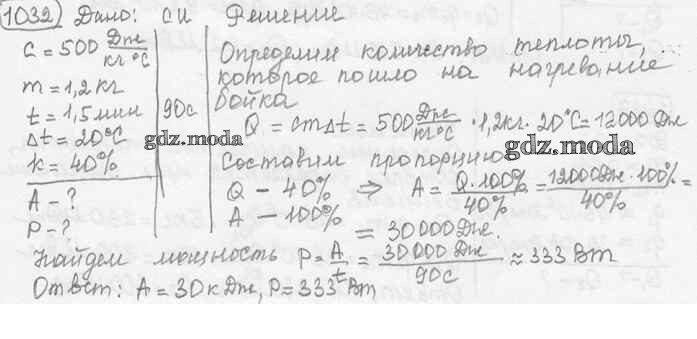 1032) Дано: СИ Решение
c = 500 Дж/кг°С
m = 1,2 кг
t = 1,5 мин 90с
Δt = 20°С
k = 40%
A - ?
P - ?
Определим количество теплоты,
которое пошло на нагревание
бойка
Q = cmΔt = 500 Дж/кг°С · 1,2кг · 20°С = 12000 Дж
gdz.moda
gdz.moda
Составим пропорцию
Q – 40% ⇒ A = Q·100%/40% = 12000Дж·100%/40% =
A – 100%
= 30000 Дж.
Найдем мощность P = A/t = 30000 Дж/90с ≈ 333 Вт
Ответ: A = 30 кДж, P = 333 Вт